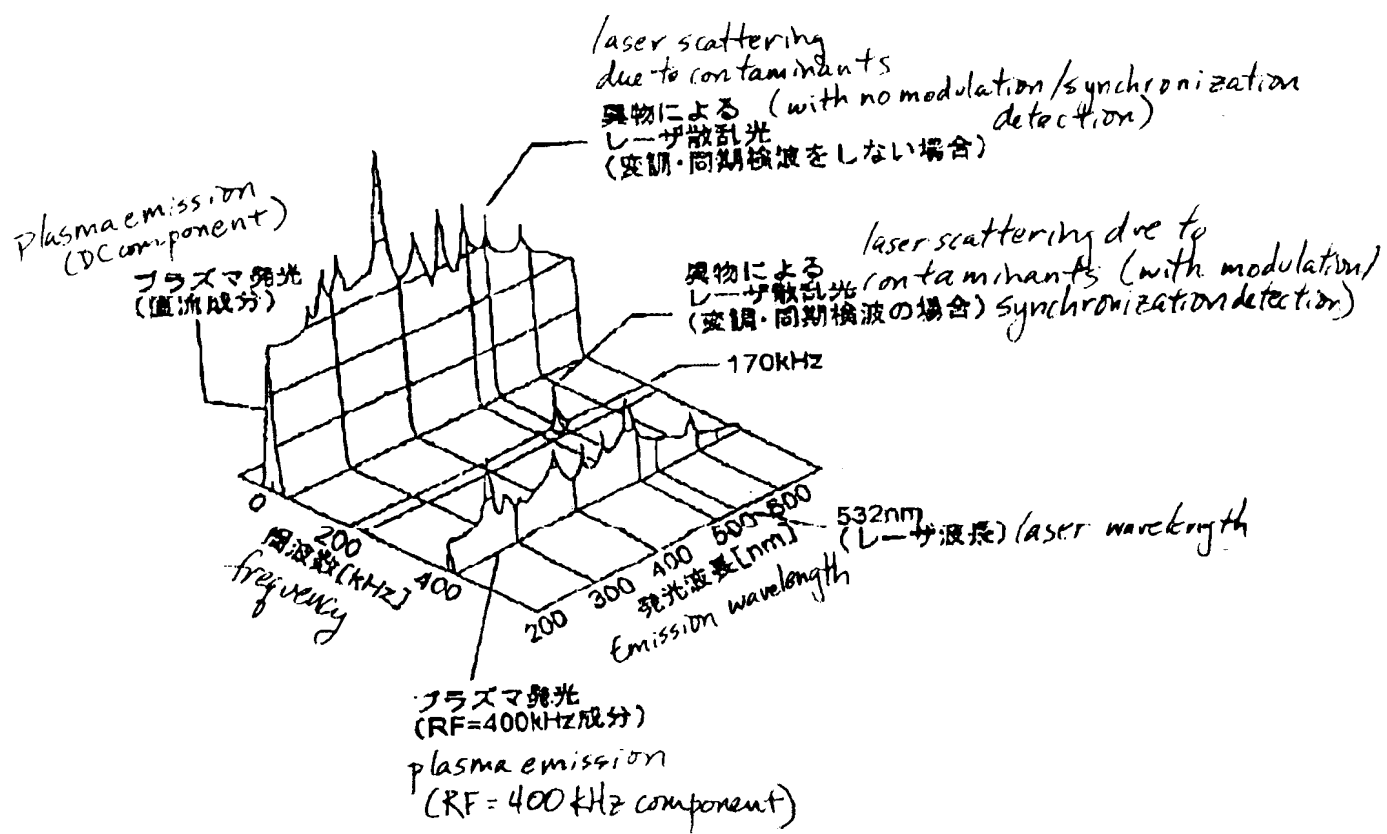 laser scattering
due to contaminants
(with no modulation/synchronization
detection)
異物による
レーザ散乱光
(変調・同期検波をしない場合)
plasma emission
(DC component)
プラズマ発光
(直流成分)
laser scattering due to
contaminants (with modulation/
synchronization detection)
異物による
レーザ散乱光
(変調・同期検波の場合)
170kHz
0
200
400
周波数[kHz]
frequency
200
300
400
500
600
発光波長[nm]
Emission wavelength
532nm
(レーザ波長) laser wavelength
プラズマ発光
(RF=400kHz成分)
plasma emission
(RF = 400 kHz component)